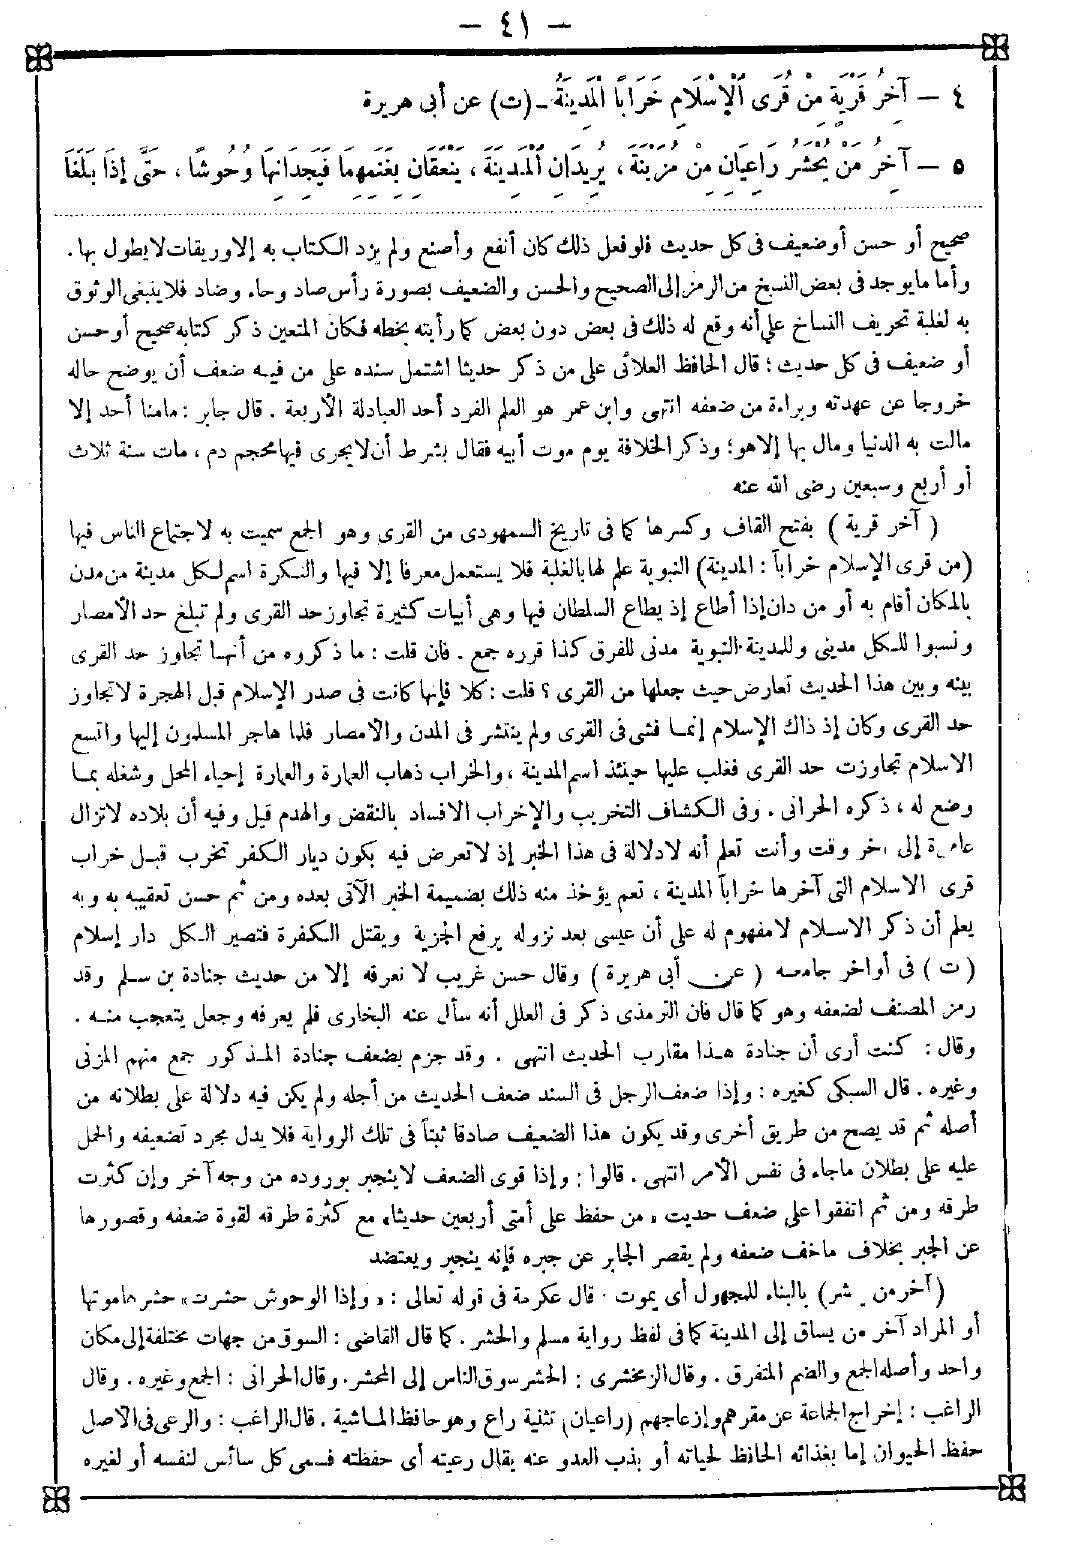 — ٤١ —
٤ — آخِرُ قَرْيَةٍ مِنْ قُرَى الْإِسْلَامِ خَرَابًا الْمَدِينَةُ - (ت) عن أبى هريرة
٥ — آخِرُ مَنْ يُحْشَرُ رَاعِيَانِ مِنْ مُزَيْنَةَ، يُرِيدَانِ الْمَدِينَةَ، يَنْعِقَانِ بِغَنَمِهِمَا فَيَجِدَانِهَا وُحُوشًا، حَتَّى إِذَا بَلَغَا
صحيح أو حسن أو ضعيف فى كل حديث فلو فعل ذلك كان أنفع وأصنع ولم يزد الكتاب به إلا وريقات لا يطول بها .
وأما ما يوجد فى بعض النسخ من الرمز إلى الصحيح والحسن والضعيف بصورة رأس صاد وحاء وضاد فلا ينبغى الوثوق
به لغلبة تحريف النساخ على أنه وقع له ذلك فى بعض دون بعض كما رأيته بخطه فكان المتعين ذكر كتابه صحيح أو حسن
أو ضعيف فى كل حديث ؛ قال الحافظ العلائى على من ذكر حديثا اشتمل سنده على من فيه ضعف أن يوضح حاله
خروجا عن عهدته وبراءة من ضعفه انتهى وابن عمر هو العلم الفرد أحد العبادلة الأربعة . قال جابر : مامنا أحد إلا
مالت به الدنيا ومال بها إلا هو ؛ وذكر الخلافة يوم موت أبيه فقال بشرط أن لا يجرى فيها محجم دم ، مات سنة ثلاث
أو أربع وسبعين رضى الله عنه
( آخر قرية ) بفتح القاف وكسرها كما فى تاريخ السمهودى من القرى وهو الجمع سميت به لاجتماع الناس فيها
(من قرى الإسلام خراباً : المدينة) النبوية علم لها بالغلبة فلا يستعمل معرفا إلا فيها والنكرة اسم لكل مدينة من مدن
بالمكان أقام به أو من دان إذا أطاع إذ يطاع السلطان فيها وهى أبيات كثيرة تجاوز حد القرى ولم تبلغ حد الأمصار
ونسبوا للكل مدينى وللمدينة النبوية مدنى للفرق كذا قرره جمع . فان قلت : ما ذكروه من أنها تجاوز حد القرى
بينه وبين هذا الحديث تعارض حيث جعلها من القرى ؟ قلت : كلا فإنها كانت فى صدر الإسلام قبل الهجرة لا تجاوز
حد القرى وكان إذ ذاك الإسلام إنما فشى فى القرى ولم ينتشر فى المدن والأمصار فلما هاجر المسلمون إليها واتسع
الاسلام تجاوزت حد القرى فغلب عليها حينئذ اسم المدينة ، والخراب ذهاب العمارة والعمارة إحياء المحل وشغله بما
وضع له ، ذكره الحرانى . وفى الكشاف التخريب والإخراب الافساد بالنقض والهدم قيل وفيه أن بلاده لا تزال
عامرة إلى آخر وقت وأنت تعلم أنه لادلالة فى هذا الخبر إذ لا تعرض فيه بكون ديار الكفر تخرب قبل خراب
قرى الاسلام التى آخرها خراباً المدينة ، نعم يؤخذ منه ذلك بضميمة الخبر الآتى بعده ومن ثم حسن تعقيبه به وبه
يعلم أن ذكر الاسلام لا مفهوم له على أن عيسى بعد نزوله يرفع الجزية ويقتل الكفرة فتصير الكل دار إسلام
(ت) فى أواخر جامعه (عن أبى هريرة) وقال حسن غريب لا نعرفه إلا من حديث جنادة بن سلم وقد
رمز المصنف لضعفه وهو كما قال فان الترمذى ذكر فى العلل أنه سأل عنه البخارى فلم يعرفه وجعل يتعجب منه .
وقال : كنت أرى أن جنادة هذا مقارب الحديث انتهى . وقد جزم بضعف جنادة المذكور جمع منهم المزنى
وغيره . قال السبكى كغيره : وإذا ضعف الرجل فى السند ضعف الحديث من أجله ولم يكن فيه دلالة على بطلانه من
أصله ثم قد يصح من طريق أخرى وقد يكون هذا الضعيف صادقا ثبتاً فى تلك الرواية فلا يدل مجرد تضعيفه والحمل
عليه على بطلان ماجاء فى نفس الأمر انتهى . قالوا : وإذا قوى الضعف لا ينجبر بوروده من وجه آخر وإن كثرت
طرقه ومن ثم اتفقوا على ضعف حديث « من حفظ على أمتى أربعين حديثا » مع كثرة طرقه لقوة ضعفه وقصورها
عن الجبر بخلاف ماخف ضعفه ولم يقصر الجابر عن جبره فإنه ينجبر ويعتضد
(آخر من يحشر) بالبناء للمجهول أى يموت . قال عكرمة فى قوله تعالى : « وإذا الوحوش حشرت » حشرها موتها
أو المراد آخر من يساق إلى المدينة كما فى لفظ رواية مسلم والحشر . كما قال القاضى : السوق من جهات مختلفة إلى مكان
واحد وأصله الجمع والضم المتفرق . وقال الزمخشرى : الحشر سوق الناس إلى المحشر . وقال الحرانى : الجمع وغيره . وقال
الراغب : إخراج الجماعة عن مقرهم وإزعاجهم (راعيان) تثنية راع وهو حافظ الماشية . قال الراغب : والرعى فى الأصل
حفظ الحيوان إما بغذائه الحافظ لحياته أو بذب العدو عنه يقال رعيته أى حفظته فسمى كل سائس لنفسه أو لغيره